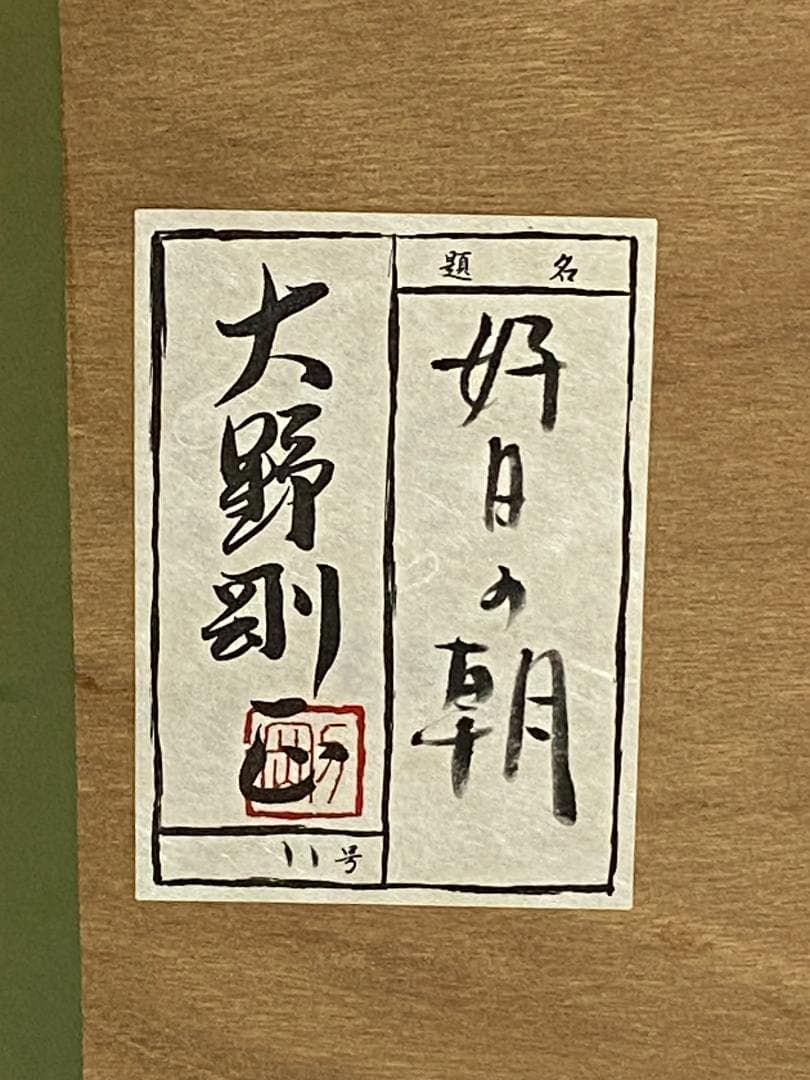 題名
好日の朝
大野剛正
11号